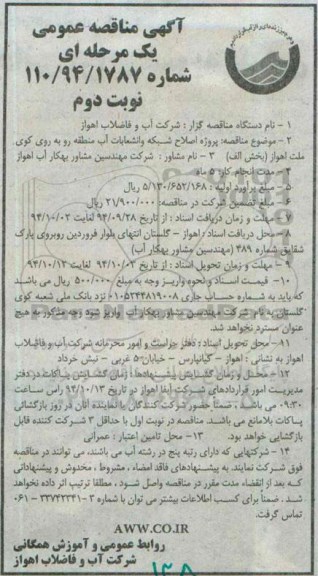 آگهی مناقصه عمومی
یک مرحله ای
شماره ۱۱۰/۹۴/۱۷۸۷
نوبت دوم
۱ - نام دستگاه مناقصه گزار : شرکت آب و فاضلاب اهواز
۲ - موضوع مناقصه: پروژه اصلاح شبکه وانشعابات آب منطقه رو به روی کوی
ملت اهواز (بخش الف) ۳ - نام مشاور : شرکت مهندسین مشاور بهکار آب اهواز
۴ - مدت انجام کار: ۵ ماه
۵ - مبلغ برآورد اولیه : ۵/۱۳۰/۶۵۲/۱۶۸ ریال
۶ - مبلغ تضمین شرکت در مناقصه: ۲۱۷/۹۰۰/۰۰۰ ریال
۷ - مهلت و زمان دریافت اسناد : از تاریخ ۹۴/۰۹/۲۸ لغایت ۹۴/۱۰/۰۲
۸ - محل دریافت اسناد : اهواز - گلستان انتهای بلوار فروردین روبروی پارک
شقایق شماره ۴۸۹ (مهندسین مشاور بهکار آب)
۹ - مهلت و زمان تحویل اسناد : از تاریخ ۹۴/۱۰/۰۳ لغایت ۹۴/۱۰/۱۳
۱۰- قیمت اسناد و نحوه واریز وجه به مبلغ ۵۰۰/۰۰۰ ریال می باشد
که باید به شماره حساب جاری ۰۱۰۵۳۴۴۸۱۹۰۰۸ نزد بانک ملی شعبه کوی
گلستان به نام شرکت مهندسین مشاور بهکار آب واریز شود وجه مذکور به هیچ
عنوان مسترد نخواهد شد.
۱۱- محل تحویل اسناد : دفتر حراست و امور محرمانه شرکت آب و فاضلاب
اهواز به نشانی : اهواز - کیانپارس - خیابان ۵ غربی - نبش خرداد
۱۲- محل و زمان گشایش پیشنهادها : زمان گشایش پاکات در دفتر
مدیریت امور قراردادهای شرکت آبفا اهواز در تاریخ ۹۴/۱۰/۱۳ راس ساعت
۰۹:۳۰ می باشد ، ضمناً حضور شرکت کنندگان یا نماینده آنان در روز بازگشائی
پاکات بلامانع می باشد. مناقصه در نوبت اول با حداقل ۳ شرکت کننده قابل
بازگشایی خواهد بود. ۱۳- محل تامین اعتبار : عمرانی
۱۴ - شرکتهایی که دارای رتبه پنج در رشته آب می باشند، می توانند در مناقصه
فوق شرکت نمایند. به پیشنهادهای فاقد امضاء ، مشروط ، مخدوش و پیشنهاداتی
که بعد از انقضاء مدت مقرر در مناقصه واصل شود ، مطلقا ترتیب اثر داده نخواهد
شد. ضمناً برای کسب اطلاعات بیشتر می توان با شماره ۳ - ۳۳۷۴۲۳۴۱ - ۰۶۱
تماس گرفت.
AWW.CO.IR
روابط عمومی و آموزش همگانی
شرکت آب و فاضلاب اهواز